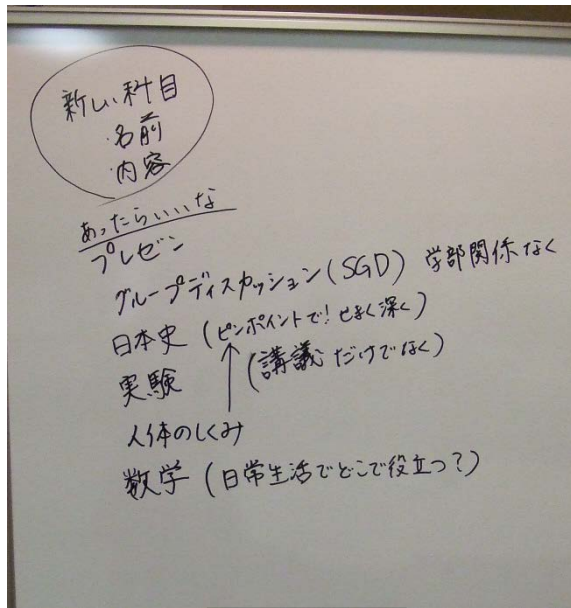 新しい科目
・名前
・内容
あったらいいな
プレゼン
グループディスカッション(SGD) 学部関係なく
日本史(ピンポイントで!せまく深く)
実験 (講義だけでなく)
人体のしくみ
数学(日常生活でどこで役立つ?)